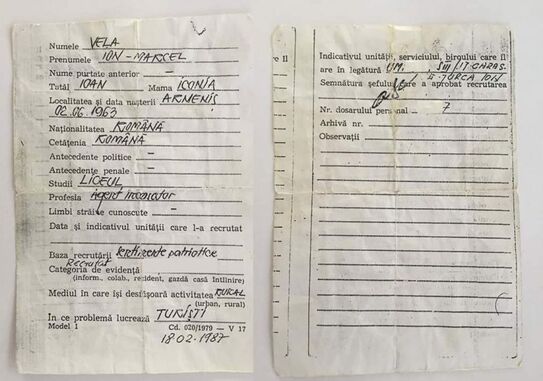 Numele VELA
Prenumele ION-MARCEL
Nume purtate anterior —
Tatăl IOAN Mama ICONIA
Localitatea și data nașterii ARMENIȘ
02.06.1963
Naționalitatea ROMÂNĂ
Cetățenia ROMÂNĂ
Antecedente politice —
Antecedente penale —
Studii LICEUL
Profesia Agent
Limbi străine cunoscute —
Data și indicativul unității care l-a recrutat
Baza recrutării sentimente patriotice
Recrutat
Categoria de evidență
(inform., colab., rezident, gazdă casă întîlnire)
Mediul în care își desfășoară activitatea RURAL
(urban, rural)
In ce problemă lucrează TURIȘTI
Model 1 Cd. 020/1979 — V 17
18.02.1987
re II
Indicativul unității, serviciului, biroului care îl
are în legătură I.J.M. S III /17 CARAS.
TURCA ION
Semnătura șefului care a aprobat recrutarea
Nr. dosarului personal 7
Arhivă nr.
Observații